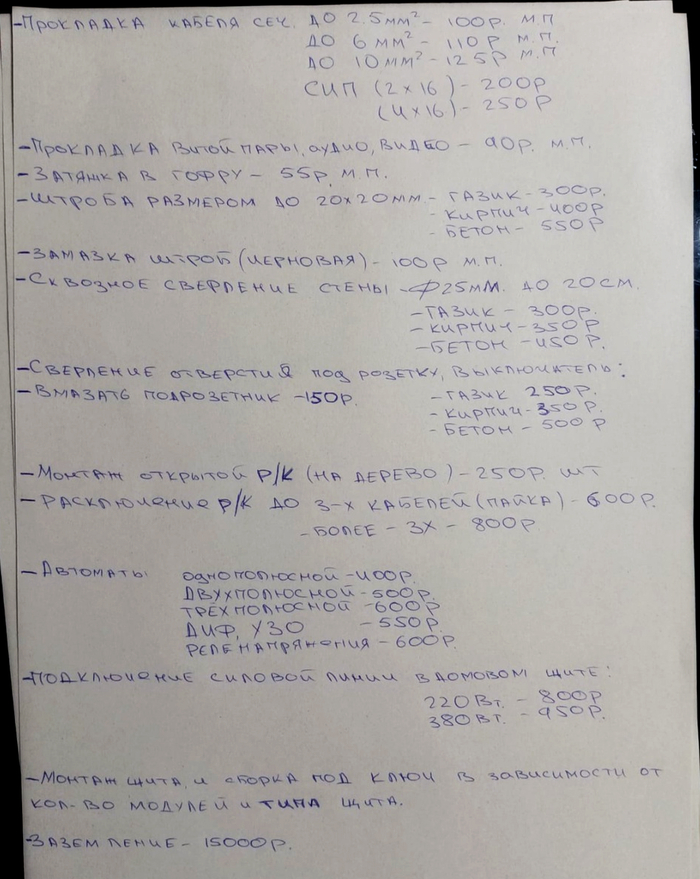 -ПРОКЛАДКА КАБЕЛЯ СЕЧ. ДО 2.5ММ² - 100Р. М.П
ДО 6ММ² - 110Р М.П.
ДО 10ММ² - 125Р М.П
СИП (2×16) - 200Р
(4×16) - 250Р
-ПРОКЛАДКА ВИТОЙ ПАРЫ, АУДИО, ВИДЕО - 90Р. М.П.
-ЗАТЯЖКА В ГОФРУ - 55Р. М.П.
-ШТРОБА РАЗМЕРОМ ДО 20×20ММ - ГАЗИК - 300Р.
- КИРПИЧ - 400Р
- БЕТОН - 550Р
-ЗАМАЗКА ШТРОБ (ЧЕРНОВАЯ) - 100Р М.П.
-СКВОЗНОЕ СВЕРЛЕНИЕ СТЕНЫ - Ф25ММ. ДО 20СМ.
-ГАЗИК - 300Р.
-КИРПИЧ - 350Р
-БЕТОН - 450Р.
-СВЕРЛЕНИЕ ОТВЕРСТИЙ ПОД РОЗЕТКУ, ВЫКЛЮЧАТЕЛЬ:
-ВМАЗАТЬ ПОДРОЗЕТНИК - 150Р. - ГАЗИК 250Р.
- КИРПИЧ - 350Р.
- БЕТОН - 500Р
-МОНТАЖ ОТКРЫТОЙ Р/К (НА ДЕРЕВО) - 250Р. ШТ
-РАСКЛЮЧЕНИЕ Р/К ДО 3-Х КАБЕЛЕЙ (ПАЙКА) - 600Р.
- БОЛЕЕ - 3Х - 800Р
-АВТОМАТЫ ОДНОПОЛЮСНОЙ - 400Р.
ДВУХПОЛЮСНОЙ - 500Р.
ТРЁХПОЛЮСНОЙ - 600Р
ДИФ, УЗО - 550Р.
РЕЛЕ НАПРЯЖЕНИЯ - 600Р.
-ПОДКЛЮЧЕНИЕ СИЛОВОЙ ЛИНИИ В ДОМОВОМ ЩИТЕ:
220ВТ. - 800Р
380ВТ. - 950Р.
-МОНТАЖ ЩИТА, И СБОРКА ПОД КЛЮЧ В ЗАВИСИМОСТИ ОТ
КОЛ-ВО МОДУЛЕЙ И ТИПА ЩИТА.
-ЗАЗЕМЛЕНИЕ - 15000Р.